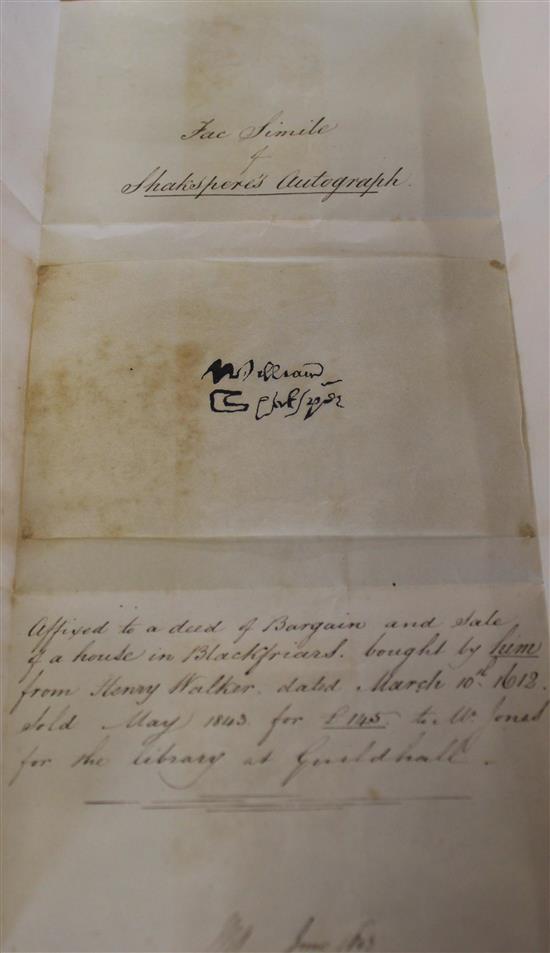 Fac Simile
of
Shakspere's Autograph.
William
Shakspēr
Affixed to a deed of Bargain and Sale
of a house in Blackfriars. bought by him
from Henry Walker. dated March 10th. 1612.
Sold May 1843. for £145. to Mr. Jones
for the library at Guildhall.
June